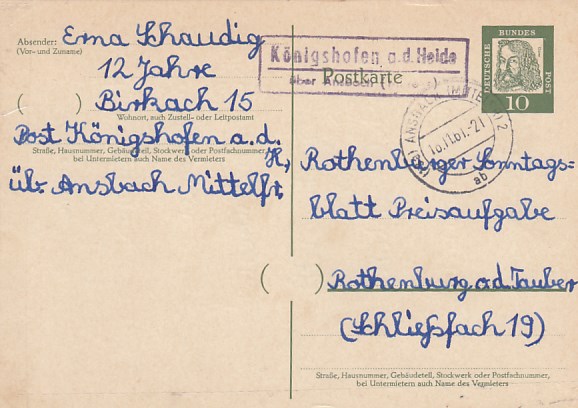 Absender: Erna Schaudig
(Vor- und Zuname)
12 Jahre
( ) Birkach 15
Wohnort, auch Zustell- oder Leitpostamt
Post Königshofen a. d.
Straße, Hausnummer, Gebäudeteil, Stockwerk oder Postfachnummer,
bei Untermietern auch Name des Vermieters
H.,
üb. Ansbach Mittelfr.
Königshofen a.d. Heide
über Ansbach
Postkarte
DEUTSCHE BUNDES POST
10
ANSBACH (MITTELFR) 2
ab
Rothenburger Sonntags-
blatt Preisaufgabe
( ) Rothenburg o.d. Tauber
(Schließfach 19)
Straße, Hausnummer, Gebäudeteil, Stockwerk oder Postfachnummer,
bei Untermietern auch Name des Vermieters